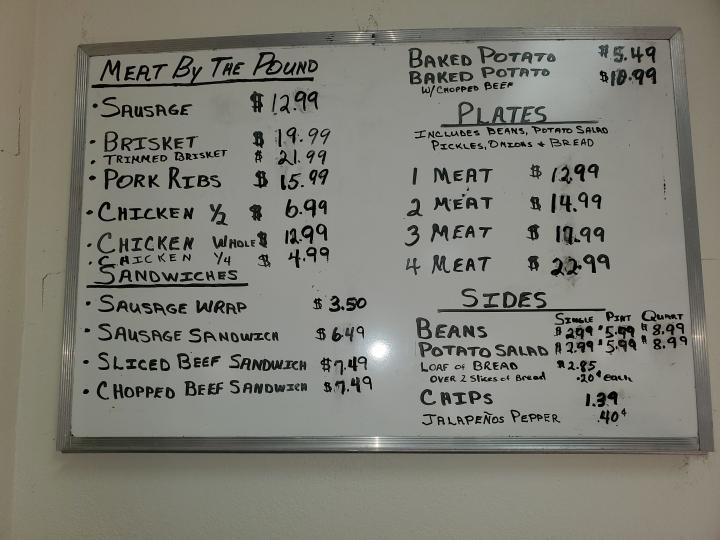 MEAT BY THE POUND
• SAUSAGE $12.99
• BRISKET $19.99
• TRIMMED BRISKET $21.99
• PORK RIBS $15.99
• CHICKEN 1/2 $6.99
• CHICKEN WHOLE $12.99
• CHICKEN 1/4 $4.99
SANDWICHES
• SAUSAGE WRAP $3.50
• SAUSAGE SANDWICH $6.49
• SLICED BEEF SANDWICH $7.49
• CHOPPED BEEF SANDWICH $7.49
BAKED POTATO $5.49
BAKED POTATO $10.99
W/CHOPPED BEEF
PLATES
INCLUDES BEANS, POTATO SALAD
PICKLES, ONIONS & BREAD
1 MEAT $12.99
2 MEAT $14.99
3 MEAT $17.99
4 MEAT $22.99
SIDES
SINGLE PINT QUART
BEANS $2.99 $5.99 $8.99
POTATO SALAD $2.99 $5.99 $8.99
LOAF OF BREAD $2.85
OVER 2 Slices of Bread .20¢ each
CHIPS 1.39
JALAPEÑOS PEPPER .40¢